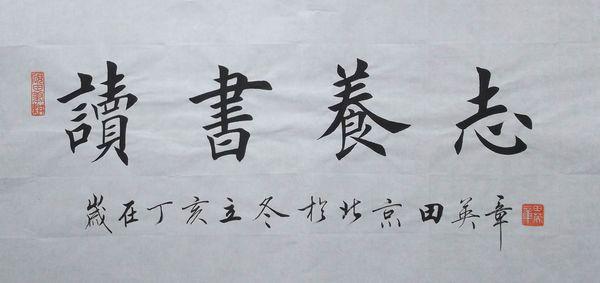 讀書養志
歲在丁亥立冬於北京田英章